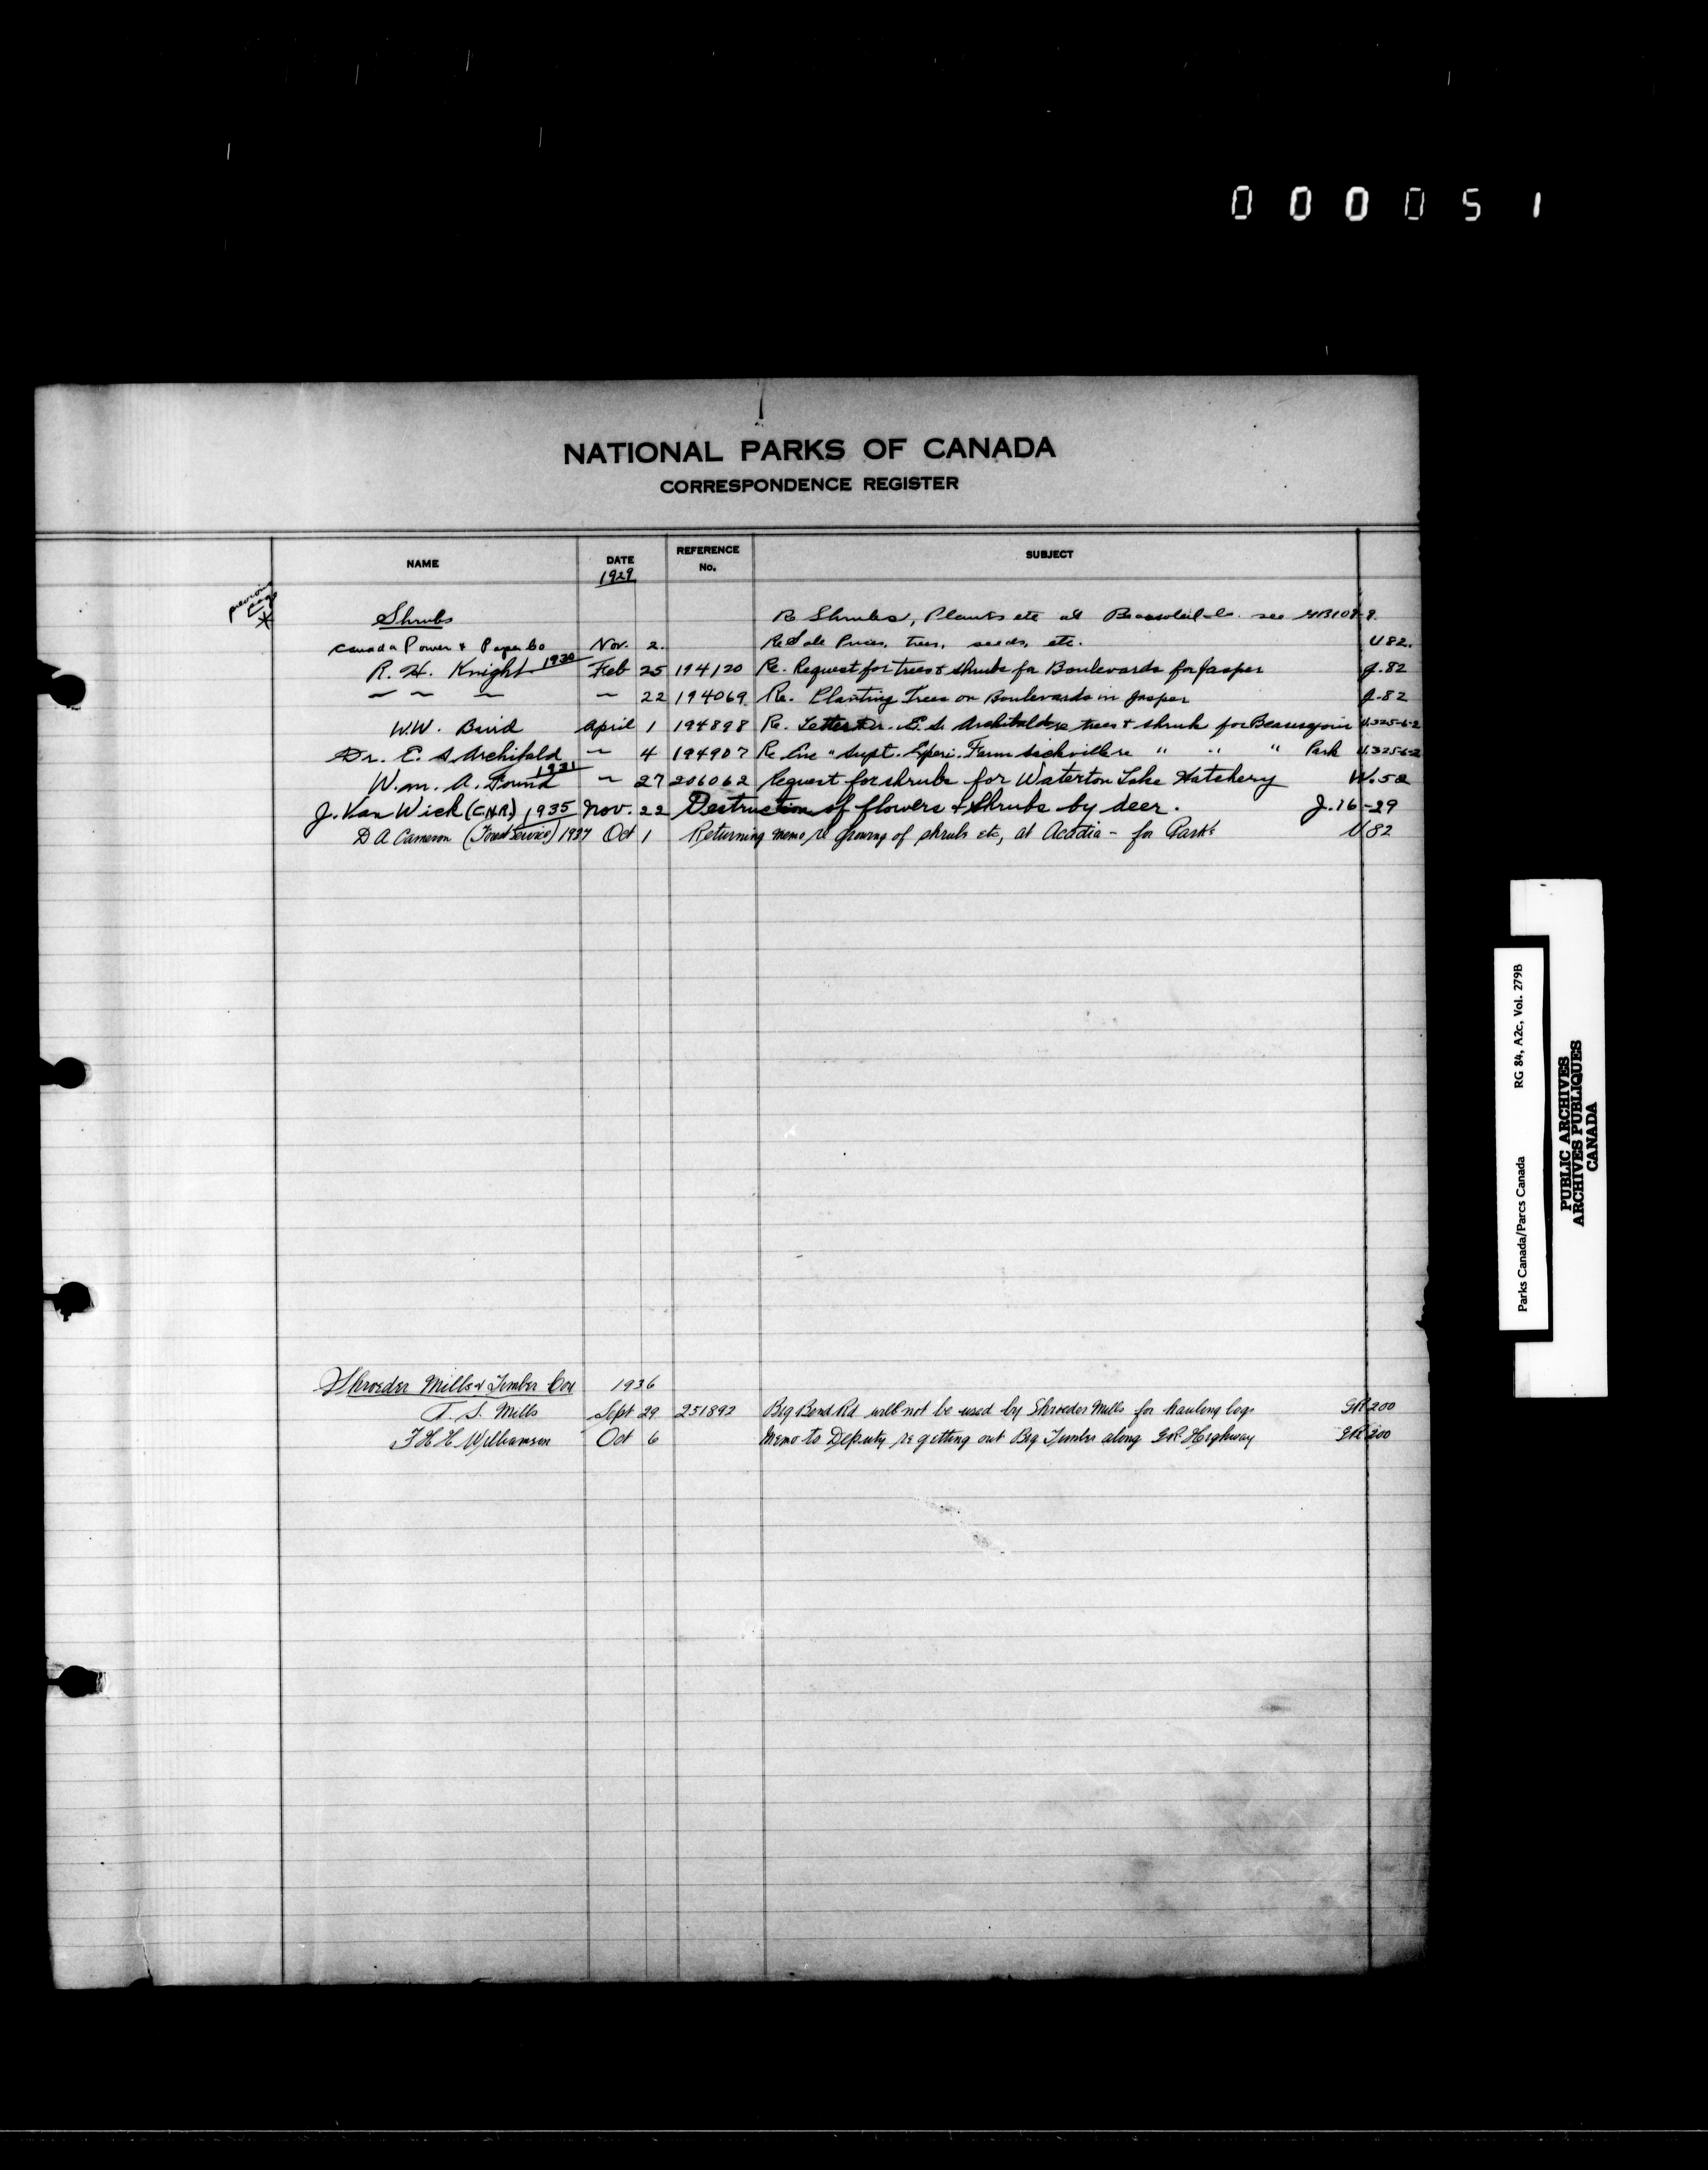 000051
NATIONAL PARKS OF CANADA
CORRESPONDENCE REGISTER
NAME DATE REFERENCE No. SUBJECT
1929
previous page
*
Shrubs Re Shrubs, Plants etc at see GB108-8.
Canada Power & Paper Co Nov. 2. Re Sale Prices, trees, seeds, etc. U82.
R. H. Knight 1930 Feb 25 194120 Re. Request for trees & shrubs for Boulevards for Jasper J.82
" " " " 22 194069 Re. Planting Trees on Boulevards in Jasper J.82
W.W. Baird April 1 194898 Re. Letter Dr. E. S. Archibald re trees & shrub for Beausejour U.325-6-2
Dr. E. S Archibald " 4 194907 Re " Supt. Experi. Farm Sackville re " " " Park U.325-6-2
Wm. A. Found 1931 " 27 206062 Request for shrubs for Waterton Lake Hatchery W.52
J. Van Wick (C.N.R.) 1935 Nov. 22 Destruction of flowers & Shrubs by deer. J.16-29
D A Cameron (Forest Service) 1937 Oct 1 Returning memo re growing of shrubs etc, at Acadia - for Parks U82
Shroeder Mills & Timber Coy 1936
T. S. Mills Sept 29 251892 Big Bend Rd will not be used by Shroeder Mills for hauling logs GR200
F H H Williamson Oct 6 Memo to Deputy re getting out Big Timber along G.R. Highway GR200
Parks Canada/Parcs Canada RG 84, A2c, Vol. 279B
PUBLIC ARCHIVES
ARCHIVES PUBLIQUES
CANADA